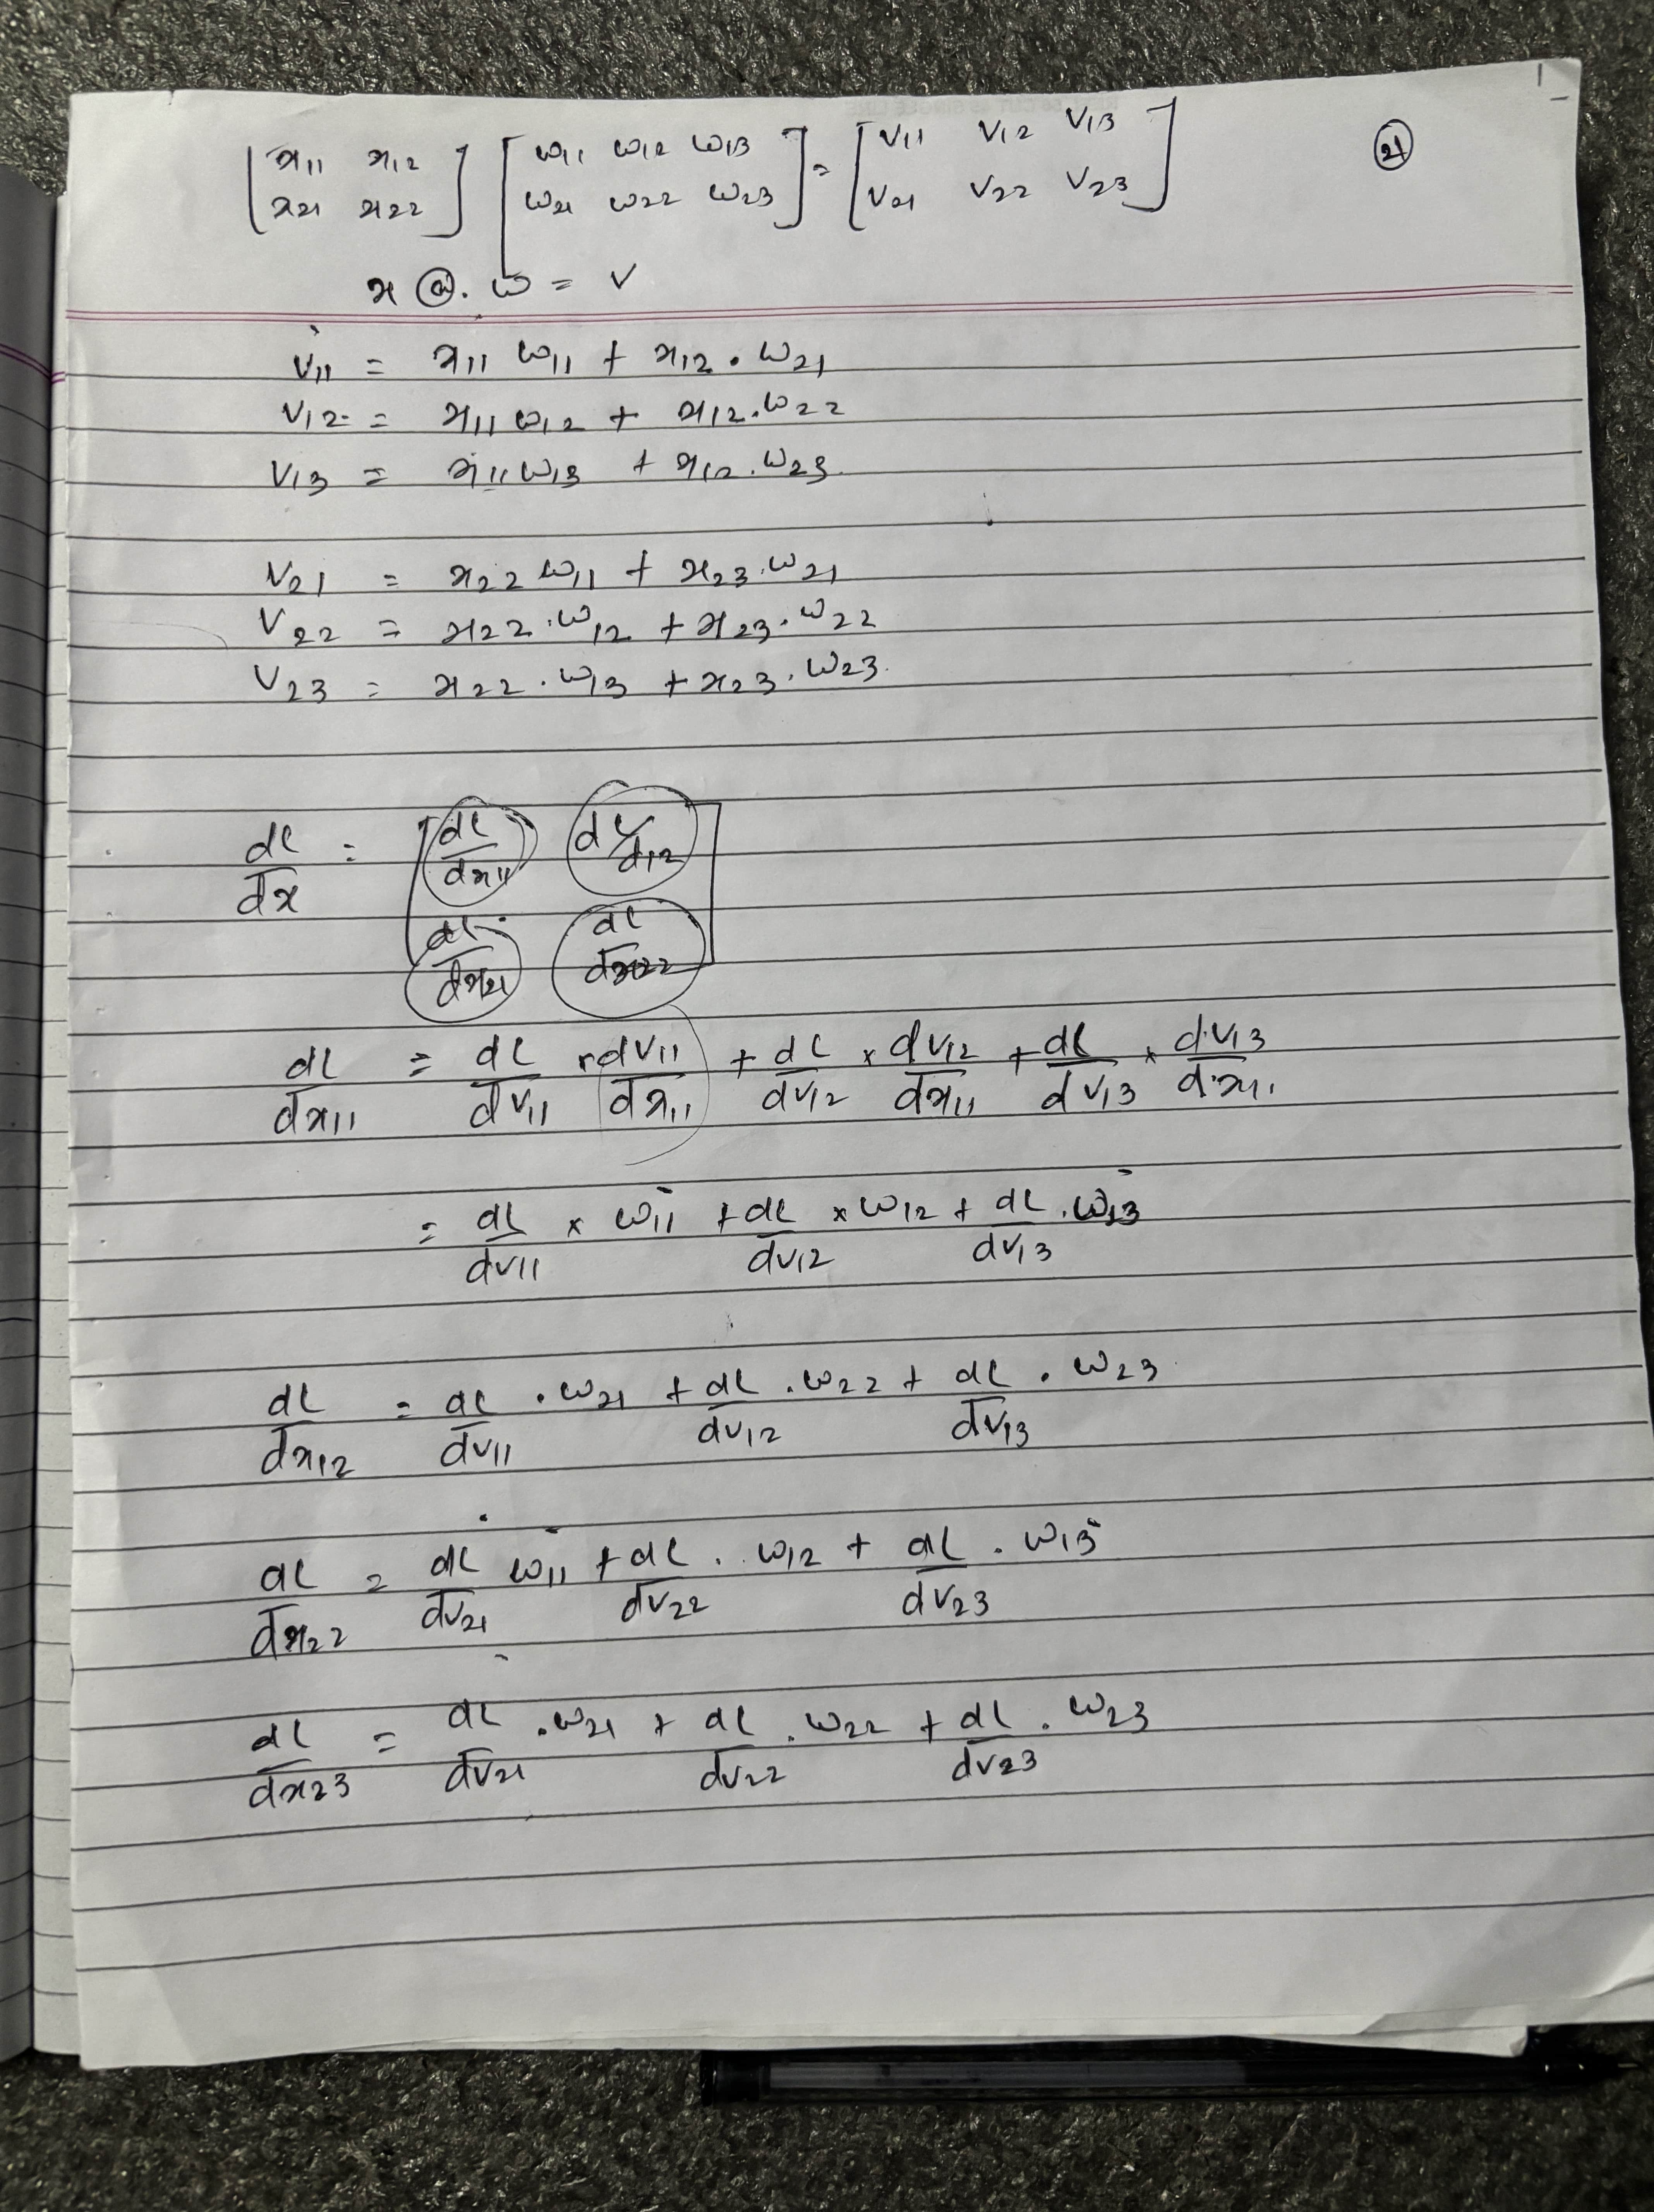 [x11 x12] [w11 w12 w13] = [v11 v12 v13] (21)
[x21 x22] [w21 w22 w23] [v21 v22 v23]
x @. w = v
v11 = x11 w11 + x12 . w21
v12 = x11 w12 + x12 . w22
v13 = x11 w13 + x12 . w23.
v21 = x22 w11 + x23 . w21
v22 = x22 . w12 + x23 . w22
v23 = x22 . w13 + x23 . w23.
dL/dx = [dL/dx11 dL/d12
dL/dx21 dL/dx22]
dL/dx11 = dL/dv11 x dv11/dx11 + dL/dv12 x dv12/dx11 + dL/dv13 x dv13/dx11
= dL/dv11 x w11 + dL/dv12 x w12 + dL/dv13 . w13
dL/dx12 = dL/dv11 . w21 + dL/dv12 . w22 + dL/dv13 . w23
dL/dx22 = dL/dv21 w11 + dL/dv22 . w12 + dL/dv23 . w13
dL/dx23 = dL/dv21 . w21 + dL/dv22 . w22 + dL/dv23 . w23